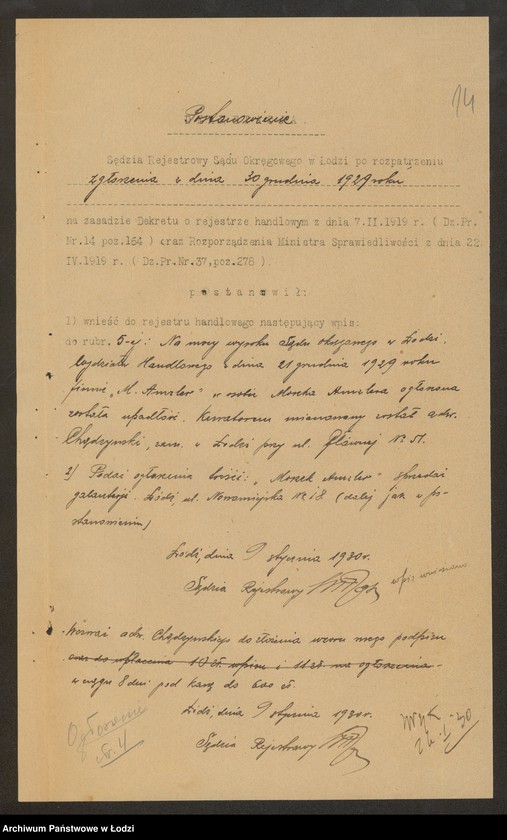 14
Postanowienie.
Sędzia Rejestrowy Sądu Okręgowego w Łodzi po rozpatrzeniu
zgłoszenia z dnia 30 grudnia 1929 roku
na zasadzie Dekretu o rejestrze handlowym z dnia 7.II.1919 r. ( Dz.Pr.
Nr.14 poz.164 ) oraz Rozporządzenia Ministra Sprawiedliwości z dnia 22
IV.1919 r. ( Dz.Pr.Nr.37,poz.278 ).
postanowił:
1) wnieść do rejestru handlowego następujący wpis:
do rubr. 5-ej: Na mocy wyroku Sądu Okręgowego w Łodzi
Wydziału Handlowego z dnia 21 grudnia 1929 roku
firmie „M. " w osobie Moszka ogłoszona
została upadłość. Kuratorem mianowany został adw.
Chądzyński, zam. w Łodzi przy ul. Głównej № 51.
2) Podać ogłoszenie treści: „Moszek " Sprzedaż
galanterji. Łódź, ul. Nowomiejska № 18 (dalej jak w po-
stanowieniu)
Łódź, dnia 9 stycznia 1930 r.
Sędzia Rejestrowy
wpis wniesiono
Wezwać adw. Chądzyńskiego do złożenia wzoru swego podpisu
oraz do wpłacenia 10 zł. wpisu i 11 zł. na ogłoszenie
w ciągu 8 dni pod karą do 600 zł.
Łódź, dnia 9 stycznia 1930 r.
Sędzia Rejestrowy
Ogłoszenie
Archiwum Państwowe w Łodzi